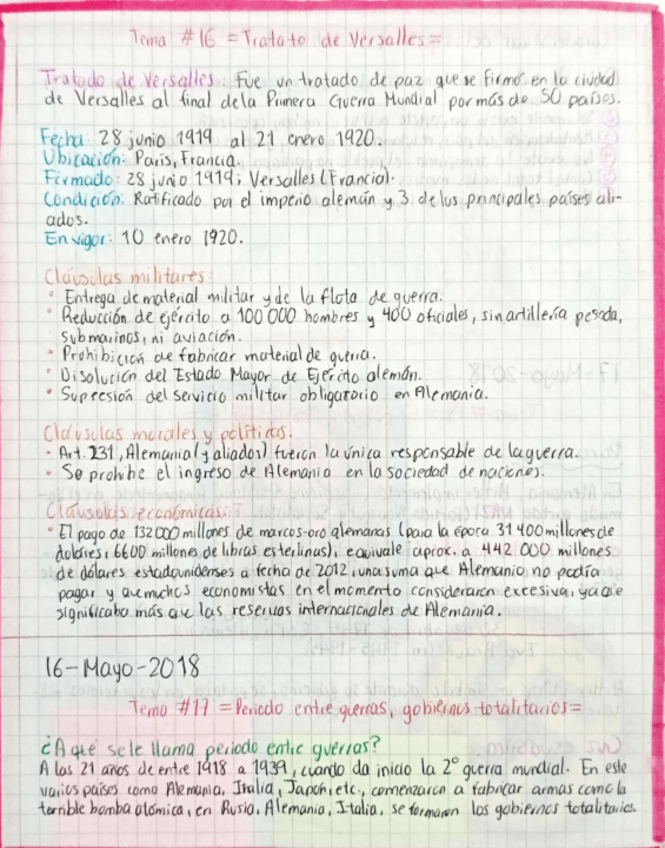 Tema #16 = Tratato de Versalles =
Tratado de Versalles: Fue un tratado de paz que se firmó en la ciudad
de Versalles al final de la Primera Guerra Mundial por más de 50 países.
Fecha: 28 junio 1919 al 21 enero 1920.
Ubicación: París, Francia.
Firmado: 28 junio 1919; Versalles (Francia).
Condición: Ratificado por el imperio alemán y 3 de los principales países ali-
ados.
En vigor: 10 enero 1920.
Cláusulas militares:
• Entrega de material militar y de la flota de guerra.
• Reducción de ejército a 100 000 hombres y 400 oficiales, sin artillería pesada,
submarinos, ni aviación.
• Prohibición de fabricar material de guerra.
• Disolución del Estado Mayor de Ejército alemán.
• Supresión del servicio militar obligatorio en Alemania.
Cláusulas morales y políticas.
• Art. 231, Alemania (y aliados) fueron la única responsable de la guerra.
• Se prohibe el ingreso de Alemania en la sociedad de naciones.
Cláusolas económicas:
• El pago de 132 000 millones de marcos-oro alemanas (para la época 31 400 millones de
dolares, 6600 millones de libras esterlinas), equivale aprox. a 442 000 millones
de dólares estadounidenses a fecha de 2012, una suma que Alemania no podía
pagar y que muchos economistas en el momento consideraron excesiva, ya que
significaba más que las reservas internacionales de Alemania.
16-Mayo-2018
Tema #17 = Periodo entre guerras, gobiernos totalitarios =
¿A qué se le llama periodo entre guerras?
A los 21 años de entre 1918 a 1939, cuando da inicio la 2° guerra mundial. En este
varios países como Alemania, Italia, Japón, etc., comenzaron a fabricar armas como la
terrible bomba atómica, en Rusia, Alemania, Italia, se formaron los gobiernos totalitarios.